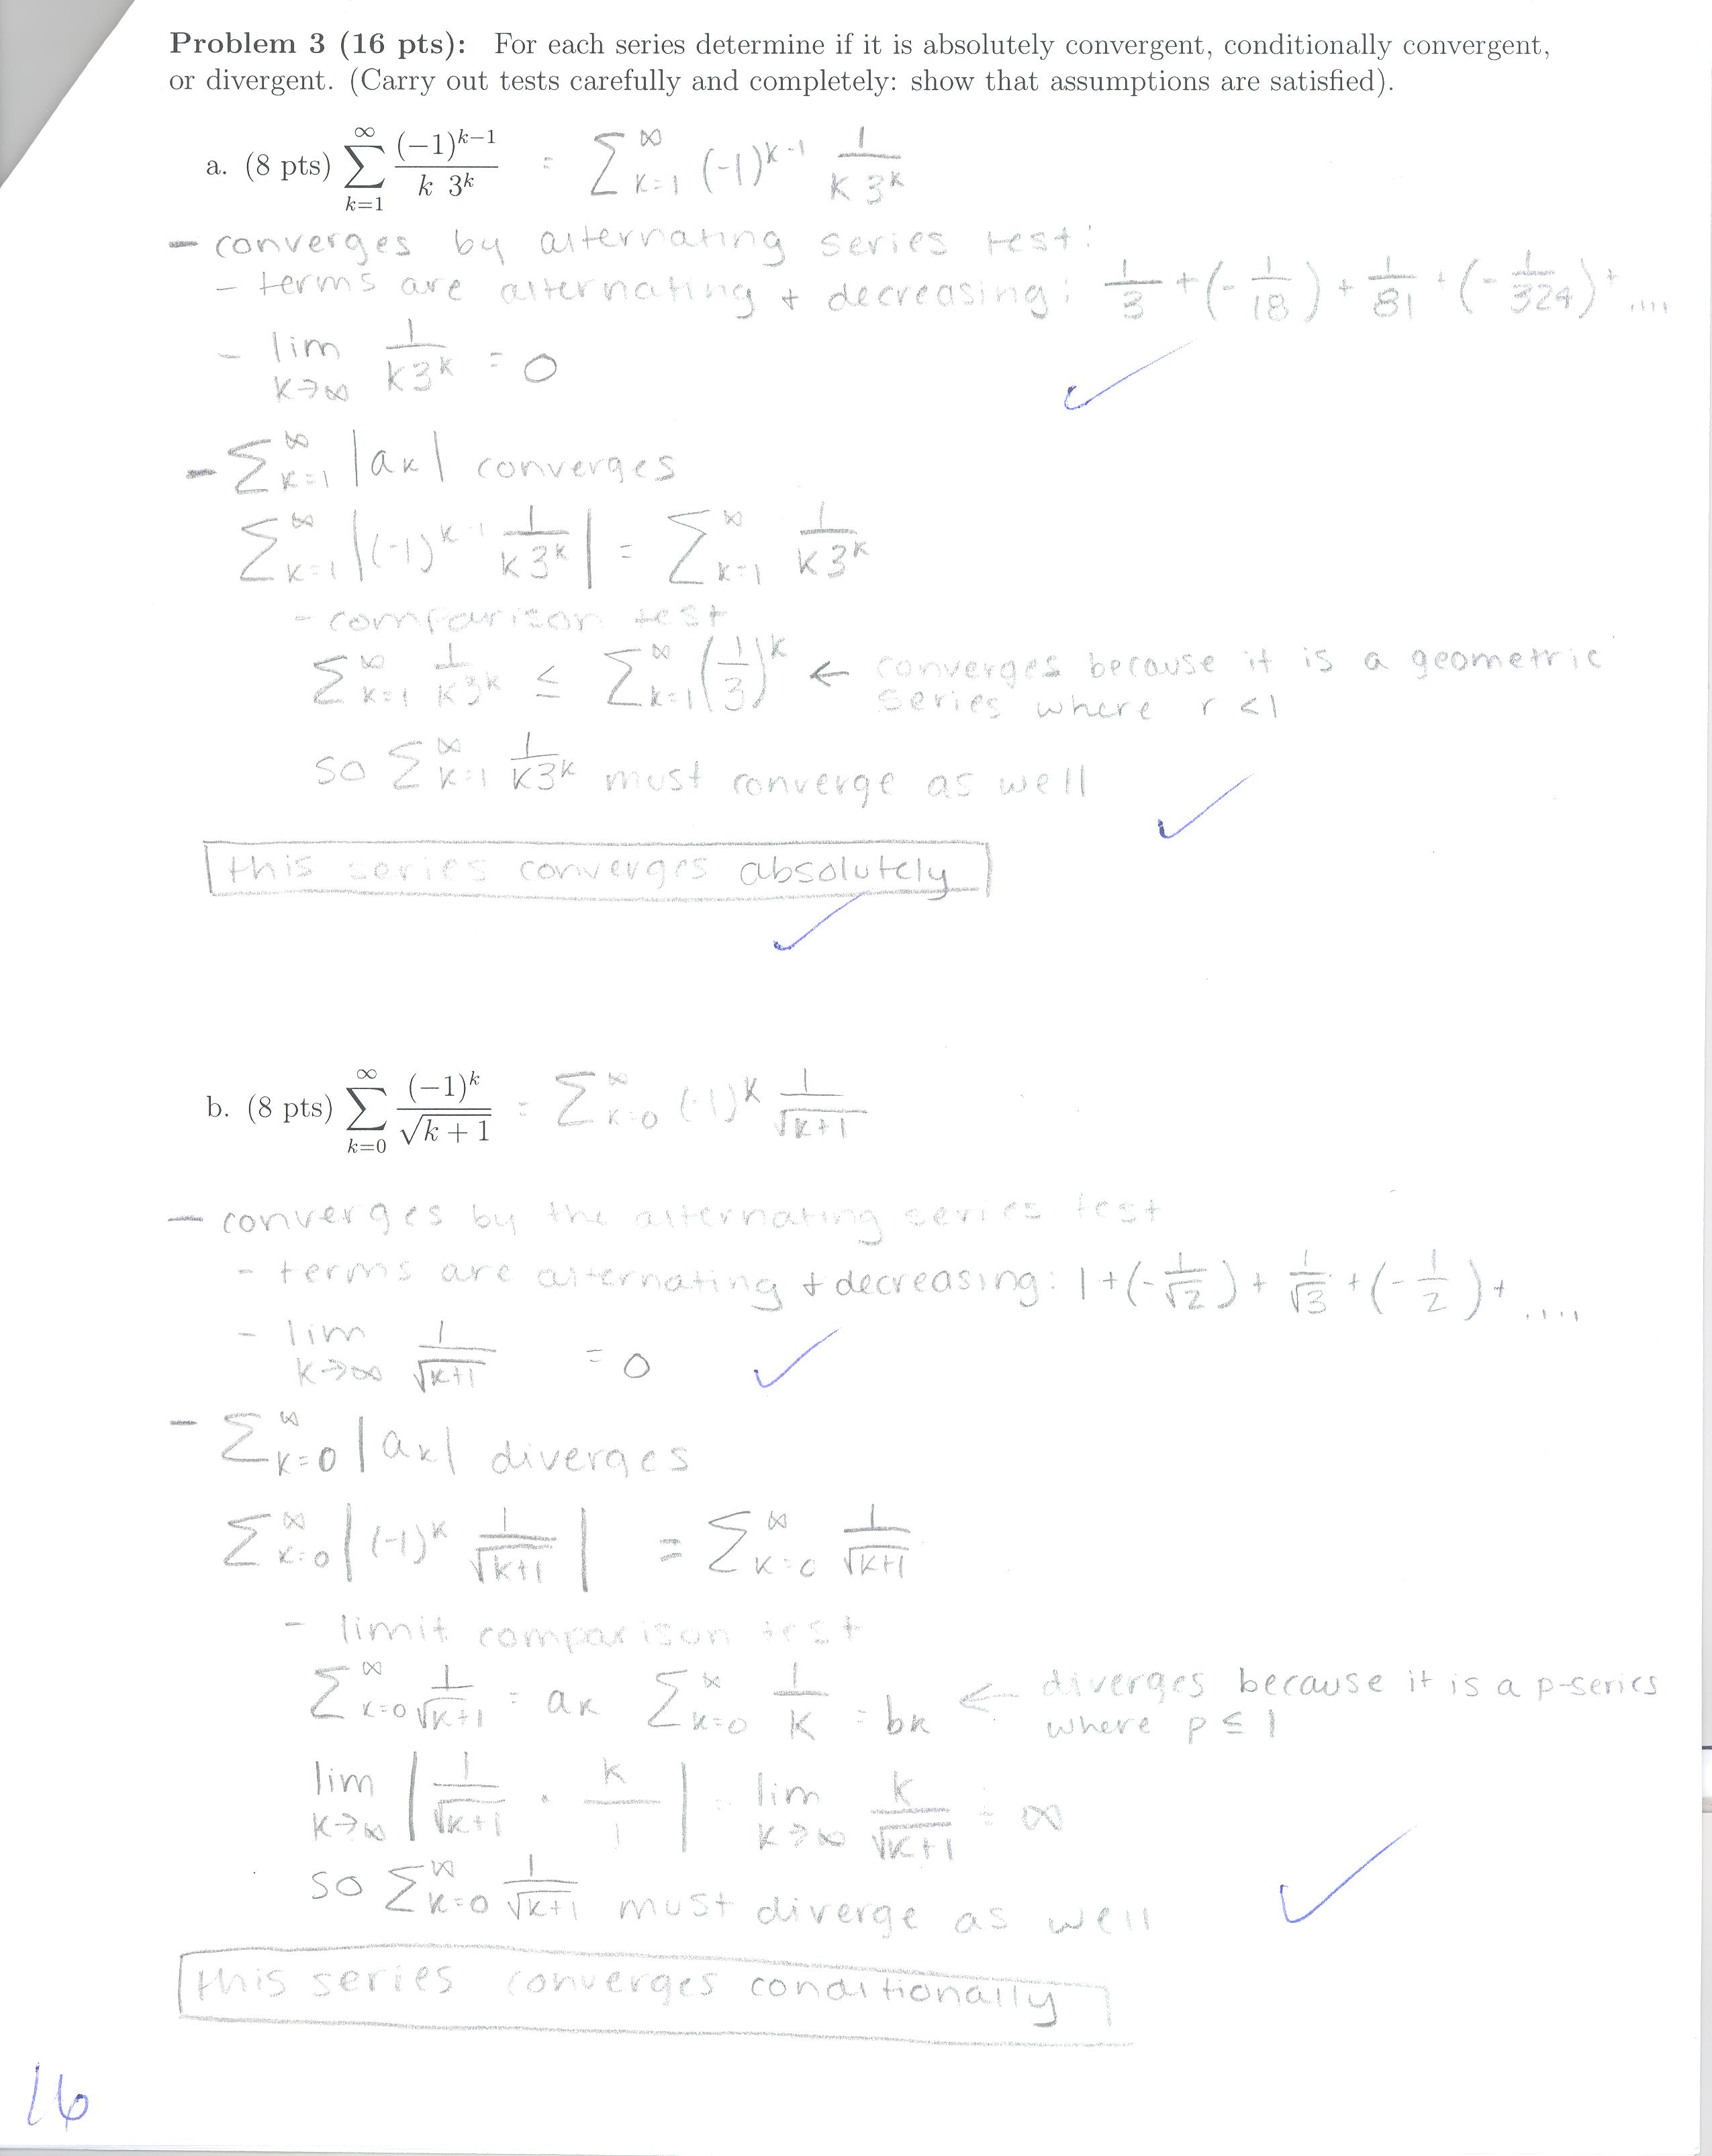 Problem 3 (16 pts): For each series determine if it is absolutely convergent, conditionally convergent,
or divergent. (Carry out tests carefully and completely: show that assumptions are satisfied).
a. (8 pts) $\sum_{k=1}^{\infty} \frac{(-1)^{k-1}}{k \, 3^k}$ = $\sum_{k=1}^{\infty} (-1)^{k-1} \frac{1}{k3^k}$
- converges by alternating series test:
- terms are alternating + decreasing: $\frac{1}{3} + (-\frac{1}{18}) + \frac{1}{81} + (-\frac{1}{324}) + ....$
- $\lim_{k \to \infty} \frac{1}{k3^k} = 0$
- $\sum_{k=1}^{\infty} |a_k|$ converges
$\sum_{k=1}^{\infty} |(-1)^{k-1} \frac{1}{k3^k}| = \sum_{k=1}^{\infty} \frac{1}{k3^k}$
- comparison test
$\sum_{k=1}^{\infty} \frac{1}{k3^k} \leq \sum_{k=1}^{\infty} (\frac{1}{3})^k$ ← converges because it is a geometric
series where r < 1
so $\sum_{k=1}^{\infty} \frac{1}{k3^k}$ must converge as well
this series converges absolutely
b. (8 pts) $\sum_{k=0}^{\infty} \frac{(-1)^k}{\sqrt{k+1}}$ = $\sum_{k=0}^{\infty} (-1)^k \frac{1}{\sqrt{k+1}}$
- converges by the alternating series test
- terms are alternating + decreasing: $1 + (-\frac{1}{\sqrt{2}}) + \frac{1}{\sqrt{3}} + (-\frac{1}{2}) + ....$
- $\lim_{k \to \infty} \frac{1}{\sqrt{k+1}} = 0$
- $\sum_{k=0}^{\infty} |a_k|$ diverges
$\sum_{k=0}^{\infty} |(-1)^k \frac{1}{\sqrt{k+1}}| = \sum_{k=0}^{\infty} \frac{1}{\sqrt{k+1}}$
- limit comparison test
$\sum_{k=0}^{\infty} \frac{1}{\sqrt{k+1}} = a_k$ $\sum_{k=0}^{\infty} \frac{1}{k} = b_k$ ← diverges because it is a p-series
where p ≤ 1
$\lim_{k \to \infty} |\frac{1}{\sqrt{k+1}} \cdot \frac{k}{1}| = \lim_{k \to \infty} \frac{k}{\sqrt{k+1}} = \infty$
so $\sum_{k=0}^{\infty} \frac{1}{\sqrt{k+1}}$ must diverge as well
this series converges conditionally
16